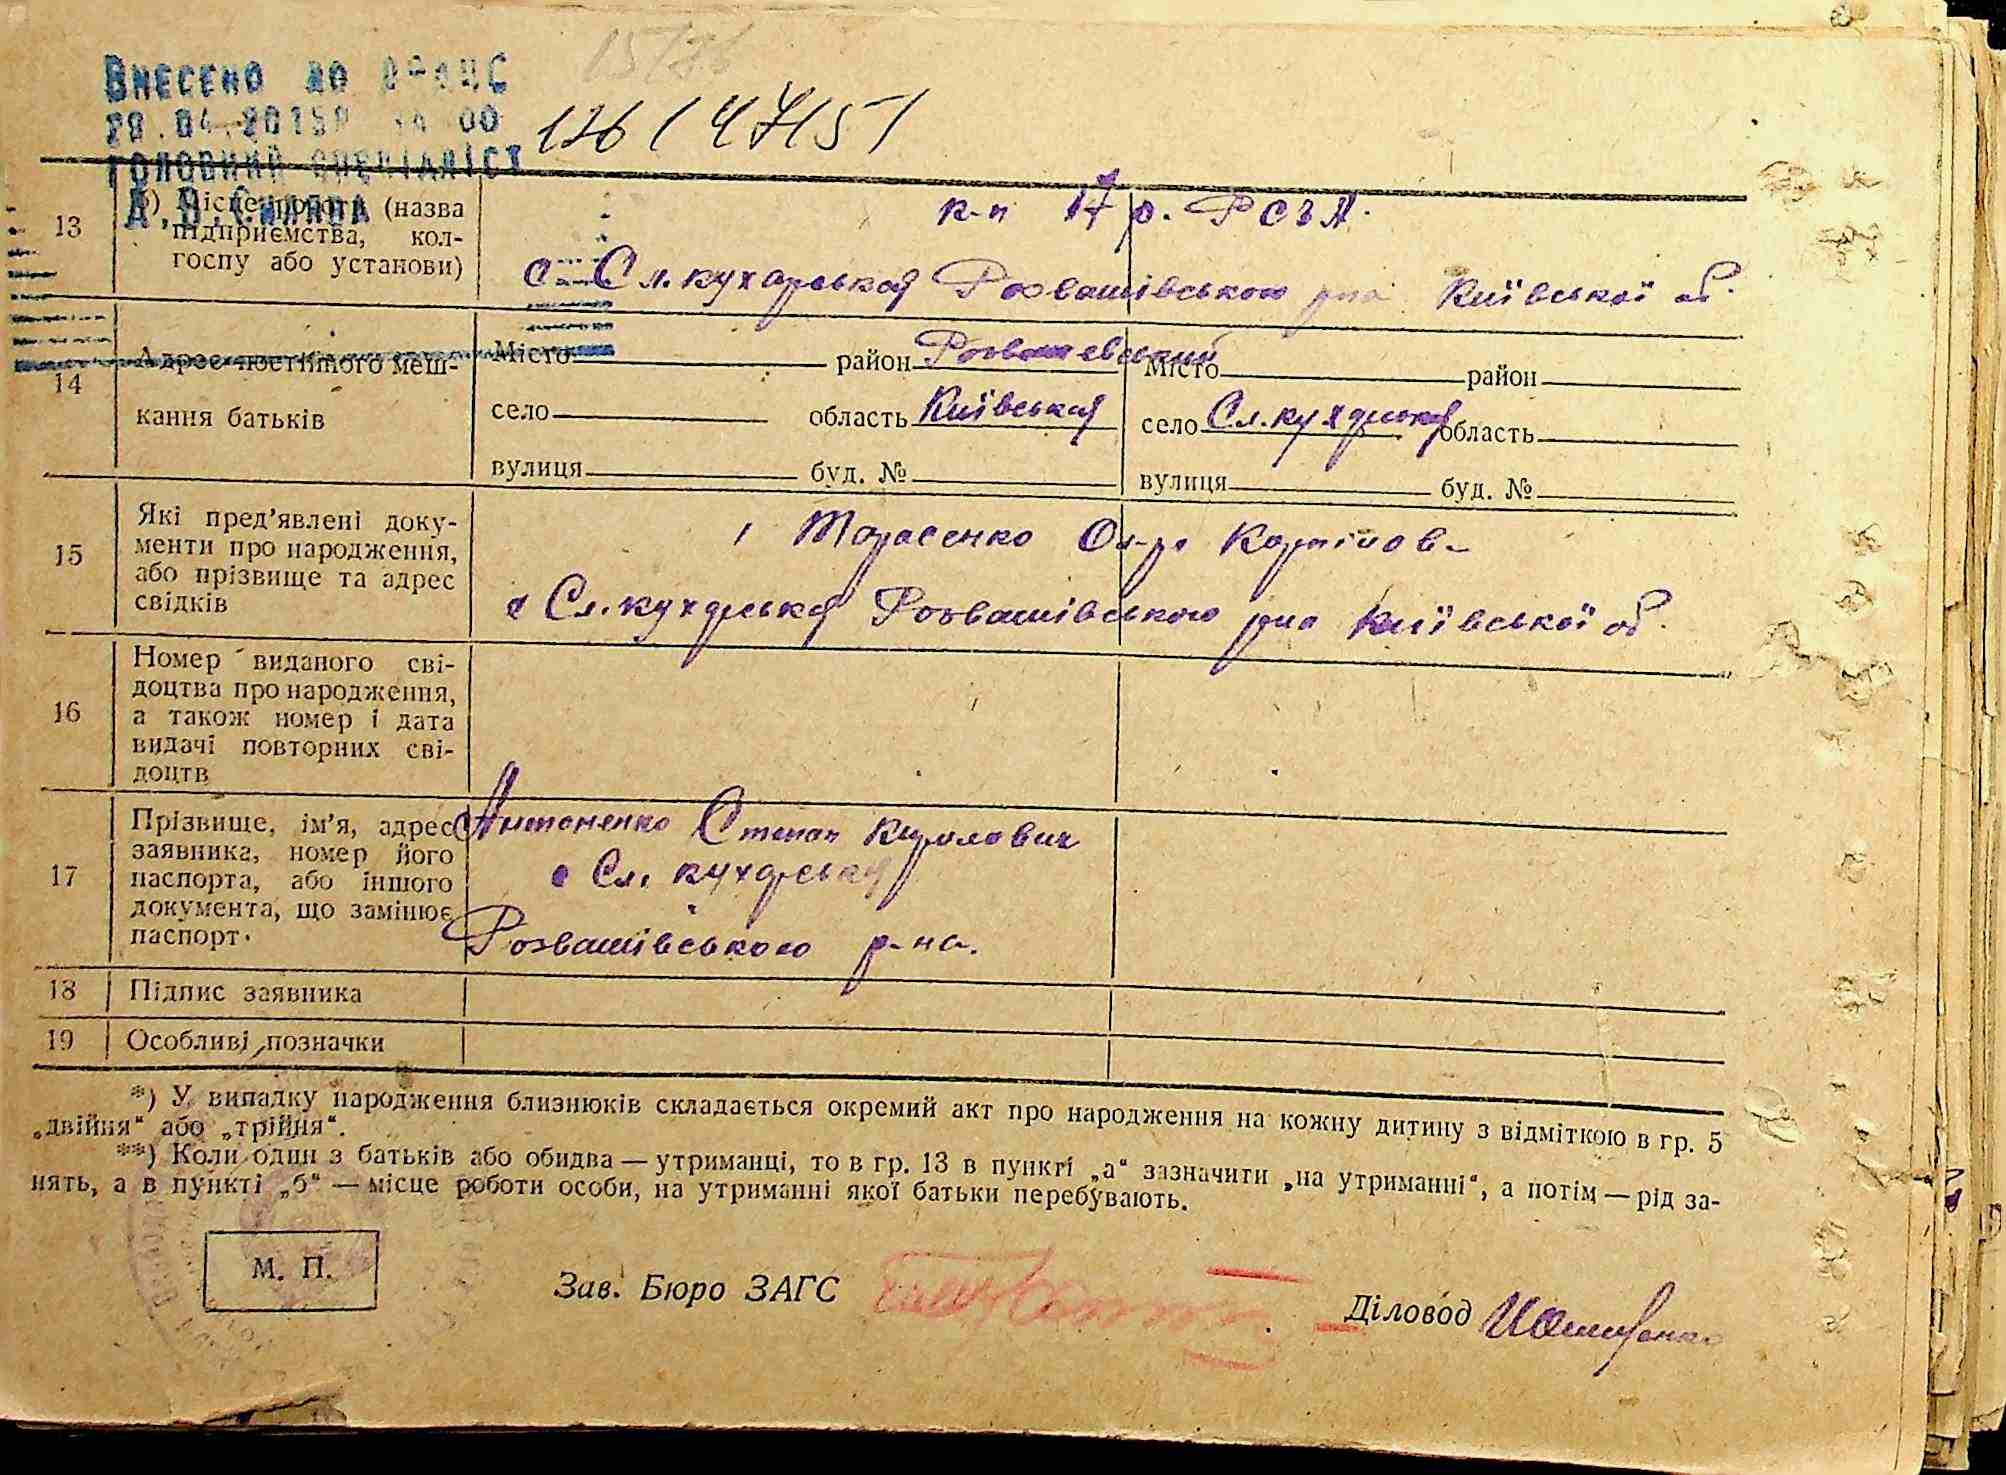 15/76
ВНЕСЕНО ДО
28.04.2015Р 14 00
126 / 47/51
ГОЛОВНИЙ СПЕЦІАЛІСТ
13 б) Місце роботи (назва підприємства, колгоспу або установи)
к-п 17 р. РСЧА.
с Сл.кухарська Розважівського р-на Київської об.
14 Адрес постійного меш-
кання батьків
Місто район Розважевський Місто район
село область Київська село Сл.кухарська область
вулиця буд. № вулиця буд. №
15 Які пред'явлені доку-
менти про народження,
або прізвище та адрес
свідків
1 Тарасенко Ол-ра Карпіов-
с Сл.кухарська Розважівського р-на Київської об.
16 Номер виданого сві-
доцтва про народження,
а також номер і дата
видачі повторних сві-
доцтв
17 Прізвище, ім'я, адрес
заявника, номер його
паспорта, або іншого
документа, що замінює
паспорт.
Антоненко Степан Кирилович
с Сл. кухарська
Розважівського р-на.
18 Підпис заявника
19 Особливі позначки
*) У випадку народження близнюків складається окремий акт про народження на кожну дитину з відміткою в гр. 5
„двійня“ або „трійня“.
**) Коли один з батьків або обидва — утриманці, то в гр. 13 в пункті „а“ зазначити „на утриманні“, а потім — рід за-
нять, а в пункті „б“ — місце роботи особи, на утриманні якої батьки перебувають.
М. П.
Зав. Бюро ЗАГС
Діловод